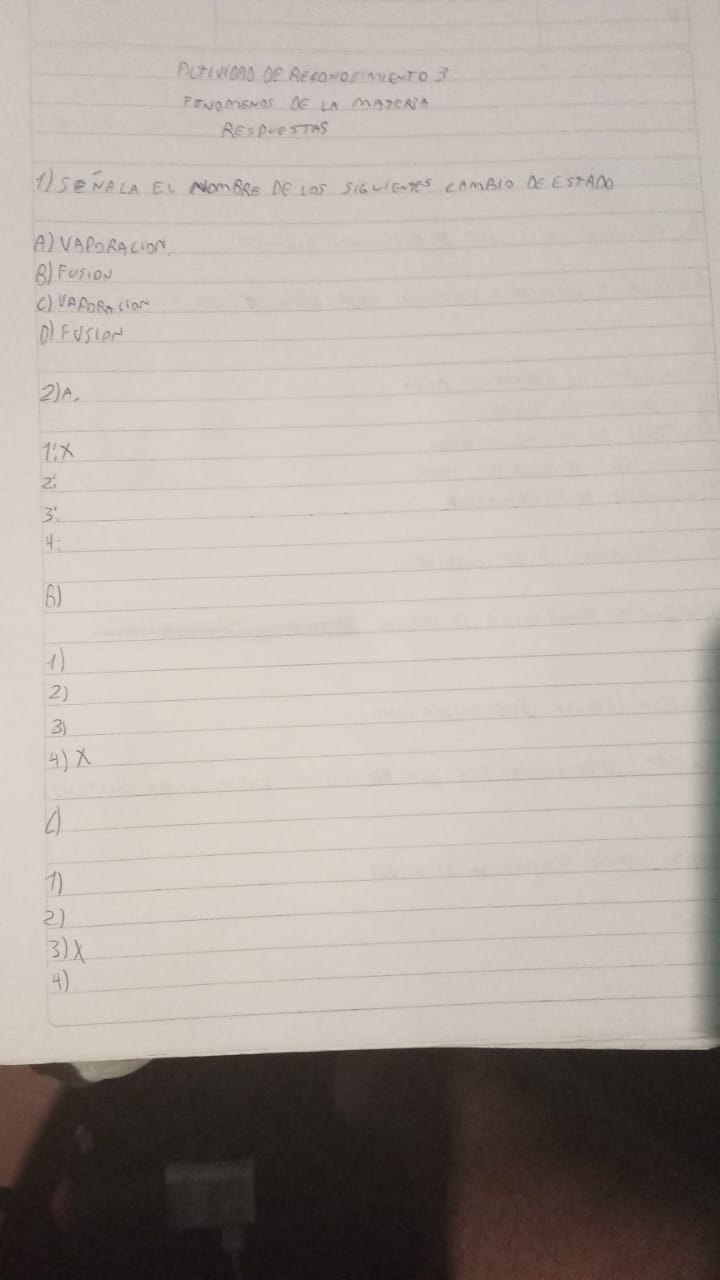 ACTIVIDAD DE RECONOCIMIENTO 3
FENOMENOS DE LA MATERIA
RESPUESTAS
1) SEÑALA EL NOMBRE DE LOS SIGUIENTES CAMBIO DE ESTADO
A) VAPORACION.
B) FUSION
C) VAPORACION
D) FUSION
2) A.
1: X
2:
3:
4:
B)
1)
2)
3)
4) X
C)
1)
2)
3) X
4)